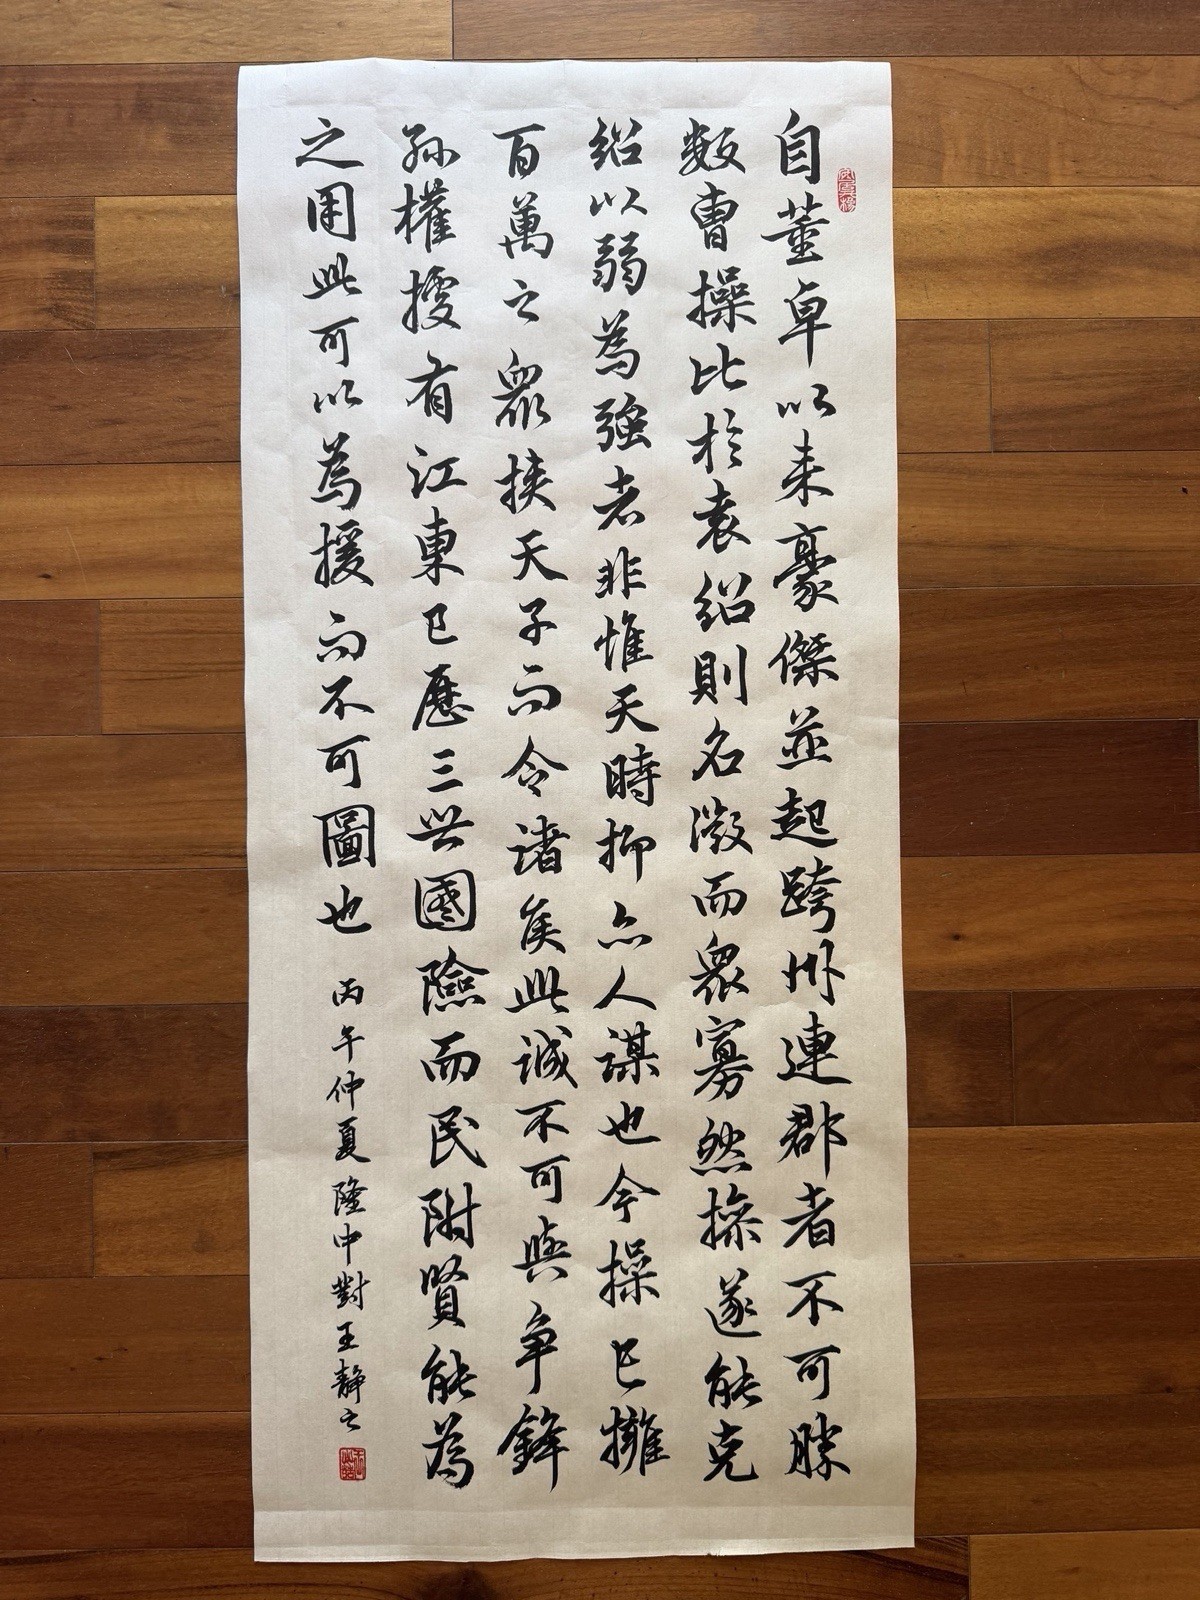 自董卓以来豪傑並起跨州連郡者不可勝
數曹操比於袁紹則名微而眾寡然操遂能克
紹以弱為強者非惟天時抑亦人謀也今操已擁
百萬之眾挾天子而令諸侯此誠不可與争鋒
孫權據有江東已歷三世國險而民附賢能為
之用此可以為援而不可圖也
丙午仲夏隆中對王静之